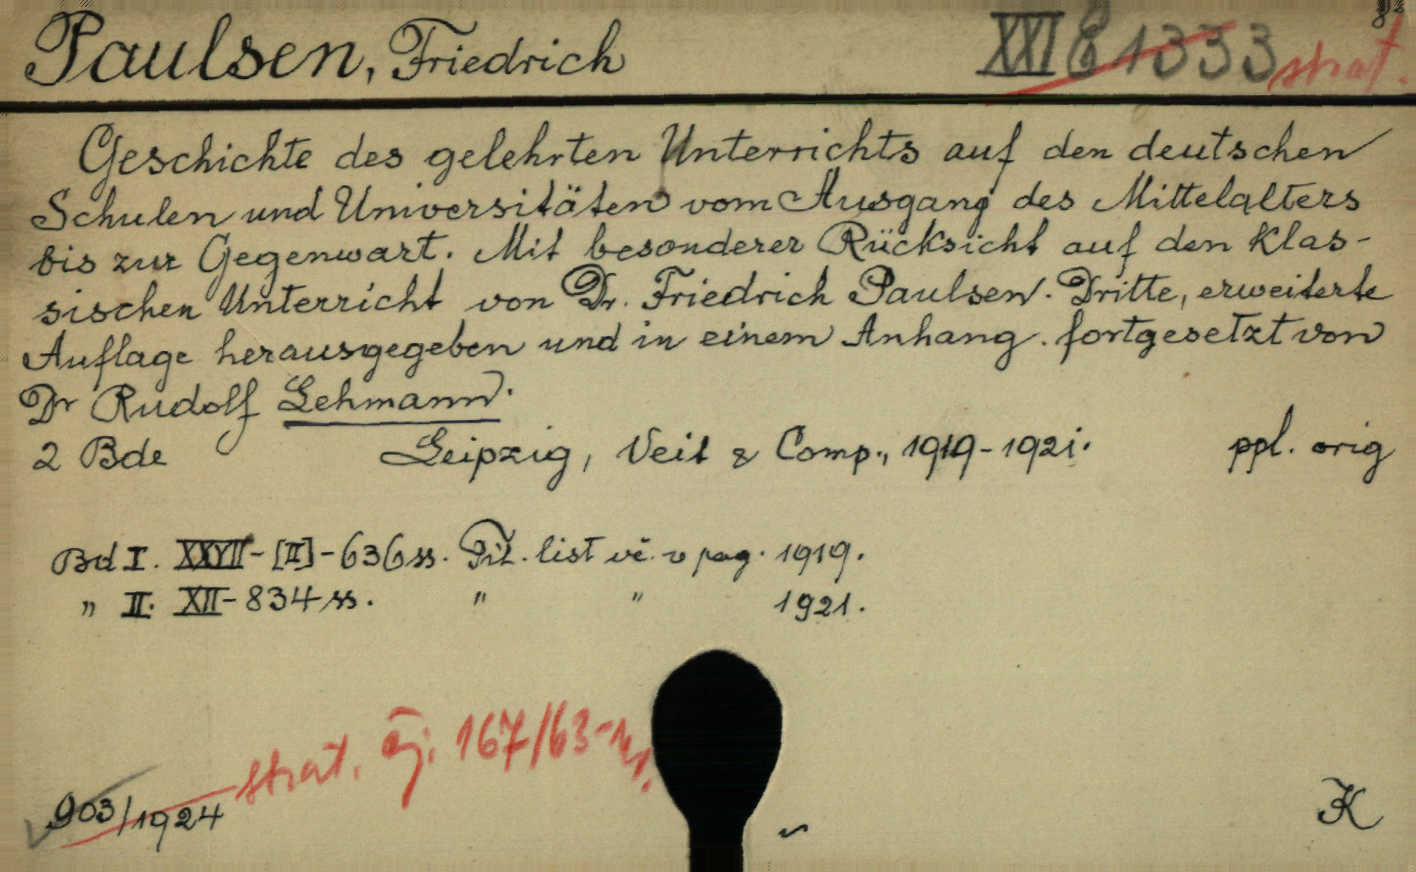 Paulsen, Friedrich XXI E 1333 strat.
Geschichte des gelehrten Unterrichts auf den deutschen
Schulen und Universitäten vom Ausgang des Mittelalters
bis zur Gegenwart. Mit besonderer Rücksicht auf den klas-
sischen Unterricht von Dr. Friedrich Paulsen. Dritte, erweiterte
Auflage herausgegeben und in einem Anhang fortgesetzt von
Dr Rudolf Lehmann.
2 Bde Leipzig, Veit & Comp., 1919-1921. ppl. orig
Bd I. XXVII-[II]-636 ss. Tit. list vč. v pag. 1919.
„ II. XII-834 ss. " " 1921.
strat. čj. 167/63
903/1924 K